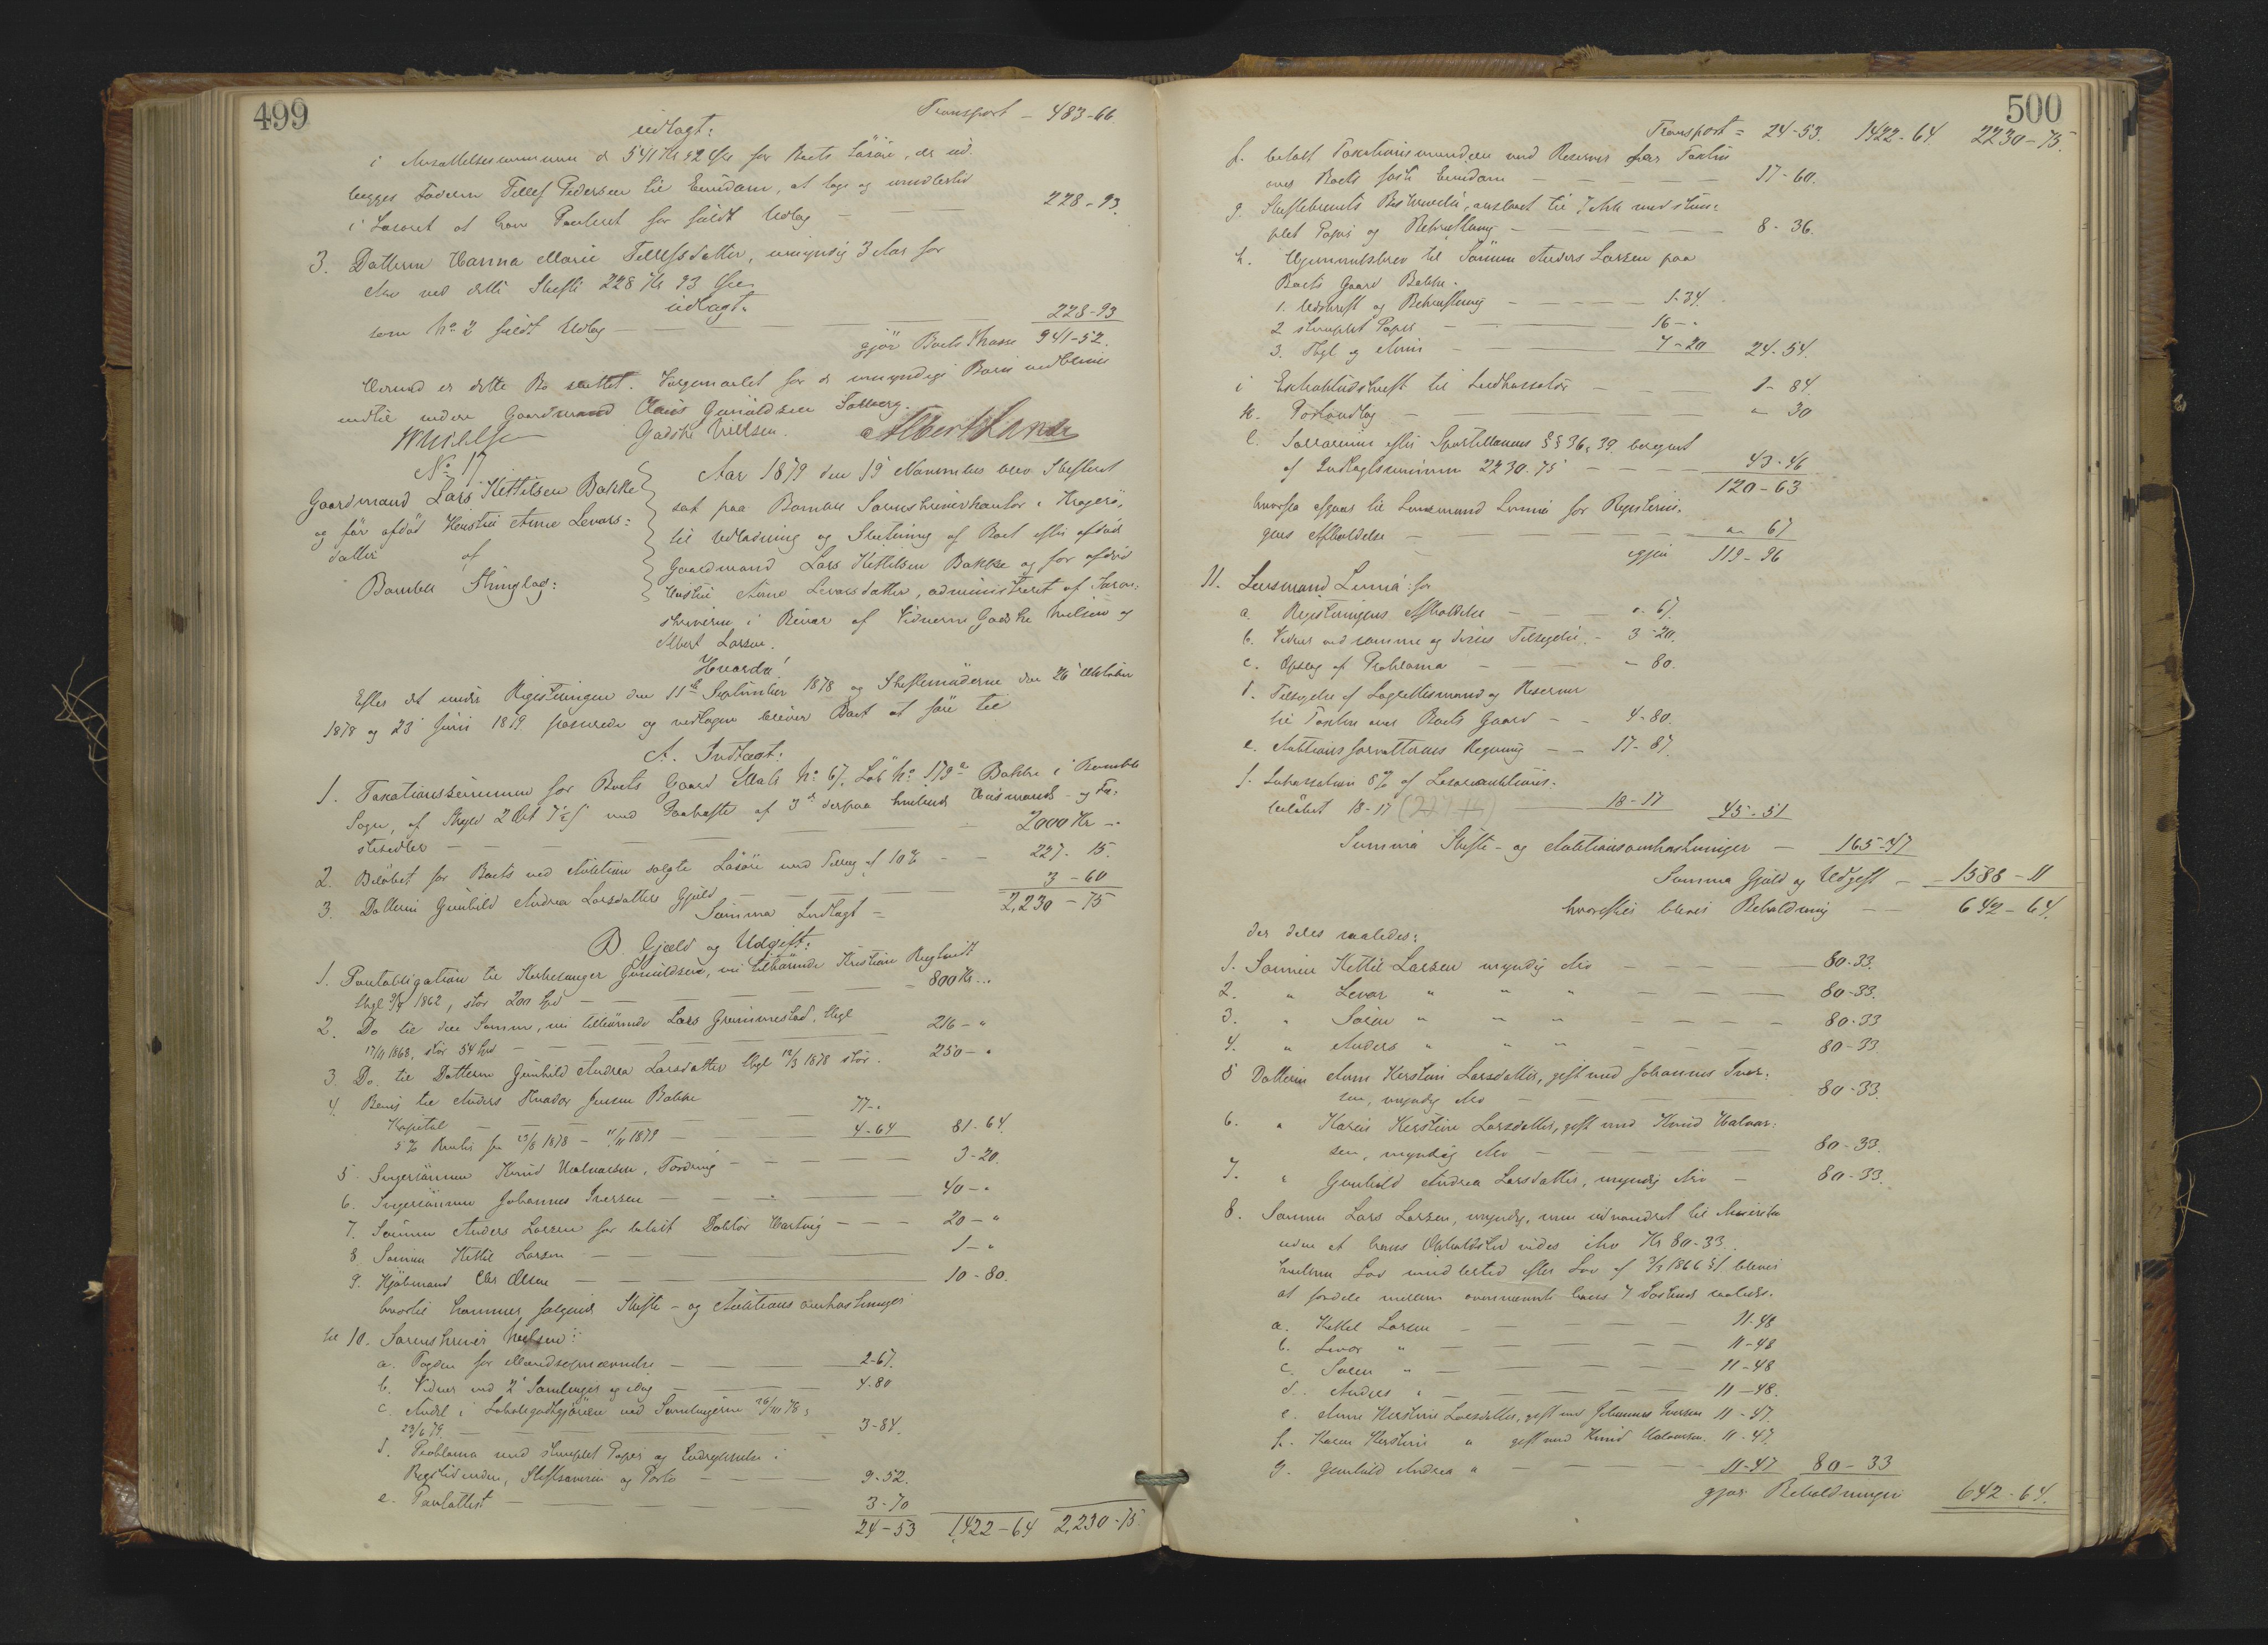 499
Transport - 483-66
udlagt:
i Ansættelsessummen d 541 Kr 92 Øre for Boets Løsøre, der ud-
lægges Faderen Tellef Pedersen til Eiendom, at tage og imidlertid
i Løsøret at have Panteret for fuldt Udlæg — 228-93.
3. Datteren Hanna Marie Tellefsdatter, umyndig 3 Aar for
Arv ved dette Skifte 228 Kr 93 Øre
udlagt.
som No 2 fuldt Udlæg — 228-93
gjør Boets Masse 941-52.
Hermed er dette Bo sluttet. Værgemaalet for de umyndige Børn vedbliver
indtil videre Gaardmand Claus Gunuldsen Solberg.
Gadske Nielsen. Albert Larsen
No 17
Gaardmand Lars Kittilsen Bakke
og før afdød Hustru Anne Levors-
datter af
Bamble Thinglag:
Aar 1879 den 15 November blev Skifteret
sat paa Bamble Sorenskriverkontor i Kragerø,
til Udlodning og Slutning af Boet efter afdøde
Gaardmand Lars Kittilsen Bakke og før afdød
Hustru Anne Levorsdatter, administreret af Soren-
skriveren i Bivær af Vidnerne Gadske Nielsen og
Albert Larsen.
Hvorda!
Efter det under Registeringen den 11te September 1878 og Skiftemøderne den 26 Oktober
1878 og 23 Juni 1879 passerede og vedtagne bliver Boet at føre til
A. Indtægt:
1. Taxationssummen for Boets Gaard Matr No 67, Løb No 179a Bakke i Bamble
Sogn, af Skyld 2 Ort 7½ ß med Paahefte af 3de derpaa hvilende Husmands- og Fæ-
stesedler — 2000 Kr -"
2. Beløbet for Boets ved Auktion solgte Løsøre med Tillæg af 10% — 227-15.
3. Datteren Gunhild Andrea Larsdatters Gjæld — 3-60
Summa Indtægt = 2,230-75
B. Gjæld og Udgift:
1. Pantobligation til Kirkesanger Gunuldsen, nu tilhørende Kristian
thgl 1862, stor 200 Spd — 800 Kr -"
2. Do til den Samme, nu tilhørende Lars Grummestad, thgl
17/11 1868, stor 54 Spd — 216-"
3. Do. til Datteren Gunhild Andrea Larsdatter thgl 12/3 1878 stor. 250-"
4. Bevis til Anders Jensen Bakke
Kapital — 77-"
5% Renter fra 23/8 1878 - 11/11 1879 — 4-64 81-64.
5. Svigersønnen Knud Halvorsen, Fordring — 3-20.
6. Svigersønnen Johannes Iversen — 40-"
7. Sønnen Anders Larsen for betalt Doktor Hartvig — 20-"
8. Sønnen Kittil Larsen — 1-"
9. Kjøbmand Chr Olsen — 10-80.
hvortil kommer følgende Skifte- og Auktionsomkostninger
til 10. Sorenskriver Nielsen:
a. Fogden for Mandsopnævnelse — 2-67.
b. Vidner ved 2 Samlinger og idag — 4-80
c. Andel i Lokalegodtgjørelse ved Samlingerne 26/10 78,
23/6 79. — 3-84.
d. Proklama med stemplet Papir og Indrykkelse i
Rigstidenden, Skiftsavisen og Porto — 9-52.
e. Pantattest — 3-70
24-53 1,422-64 2,230-75
500
Transport = 24-53. 1422-64 2230-75.
f. betalt Taxationsmændene med Reserver for Taxten
over Boets faste Eiendom — 17-60.
g. Skiftebrevets Beskrivelse, anslaaet til 7 Ark med stem-
plet Papir og Bekræftning — 8-36.
h. Hjemmelsbrev til Sønnen Anders Larsen paa
Boets Gaard Bakke.
1. Udskrift og Bekræftning — 1-34.
2 stemplet Papir — 16-"
3. Thgl og Avis — 7-20 24-54.
i Extraktudskrift til Indkassator — 1-84.
k. Portoudlæg — "-30
l. Sallarium efter Sportellovens §§ 36, 39 beregnet
af Indtægtssummen 2230.75 — 43-46
120-63
hvorfra afgaar til Lensmand Linnæ for Registerin-
gens Afholdelse — "-67
igjen 119-96
11. Lensmand Linnæ: for
a. Registeringens Afholdelse — "-67.
b. Vidner ved samme og deres Tilsigelse — 3-20.
c. Opslag af Proklama — "-80.
d. Tilsigelse af Lagrettesmænd og Reserver
til Taxten over Boets Gaard — 4-80.
e. Auktionsforvalterens Regning — 17-87.
f. Inkassation 8% af Løsøreauktions-
beløbet 18-17 — 18-17 45-51
Summa Skifte- og Auktionsomkostninger — 165-47
Summa Gjæld og Udgift — 1588-11
hvorefter bliver Beholdning — 642-64.
der deles saaledes:
1. Sønnen Kittil Larsen myndig Arv — 80-33.
2. " Levor " " " — 80-33.
3. " Søren " " " — 80-33
4. " Anders " " " — 80-33.
5 Datteren Anne Kirstine Larsdatter, gift med Johannes Iver-
sen, myndig Arv — 80-33.
6. " Karen Kirstine Larsdatter, gift med Knud Halvor-
sen, myndig Arv — 80-33.
7. " Gunhild Andrea Larsdatter, myndig Arv — 80-33.
8. Sønnen Lars Larsen, myndig, men udvandret til Amerika
uden at hans Opholdssted vides Arv Kr 80-33.
hvilken Lod imidlertid efter Lov af 3/3 1866 § 1 bliver
at fordele mellem ovennævnte hans 7 Søskende saaledes.
a. Kittil Larsen — 11-48
b. Levor " — 11-48
c. Søren " — 11-48
d. Anders " — 11-48.
e. Anne Kirstine Larsdatter, gift med Johannes Iversen 11-47.
f. Karen Kirstine " gift med Knud Halvorsen. 11-47.
g. Gunhild Andrea " — 11-47 80-33
gjør Beholdningen 642-64.